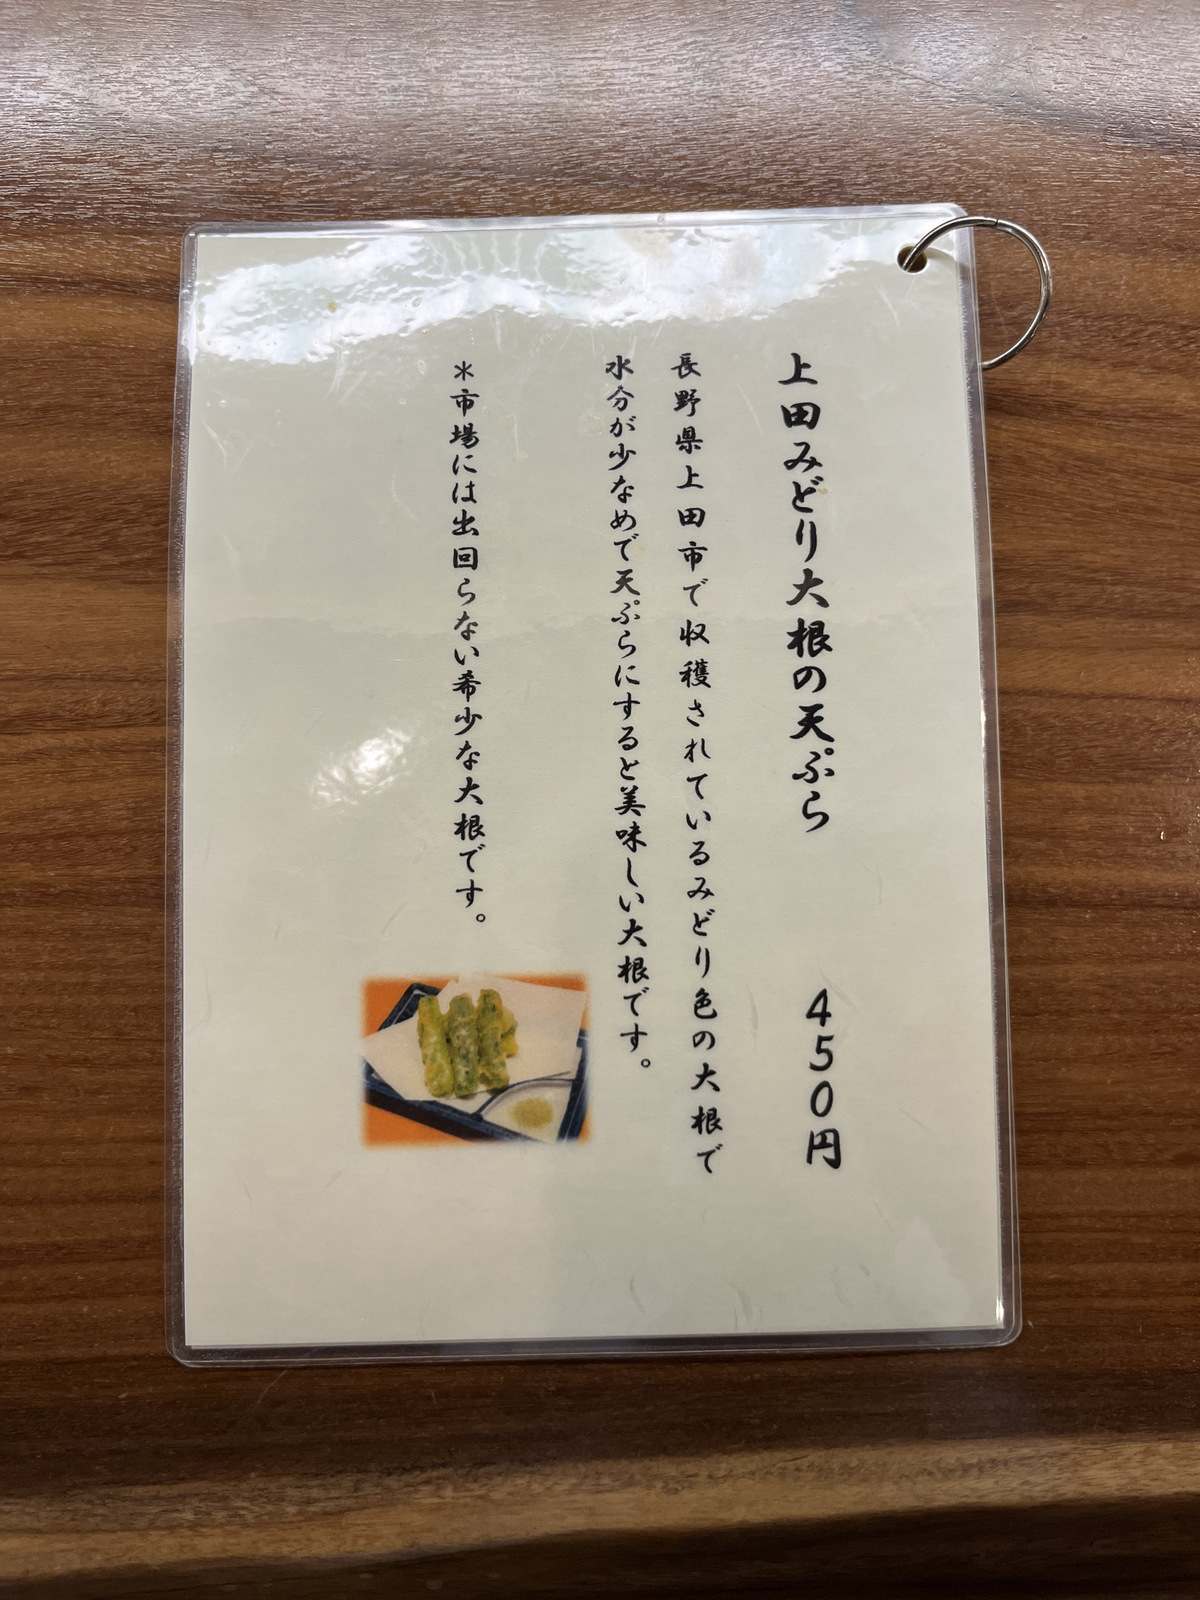 上田みどり大根の天ぷら　450円
長野県上田市で収穫されているみどり色の大根で
水分が少なめで天ぷらにすると美味しい大根です。
＊市場には出回らない希少な大根です。